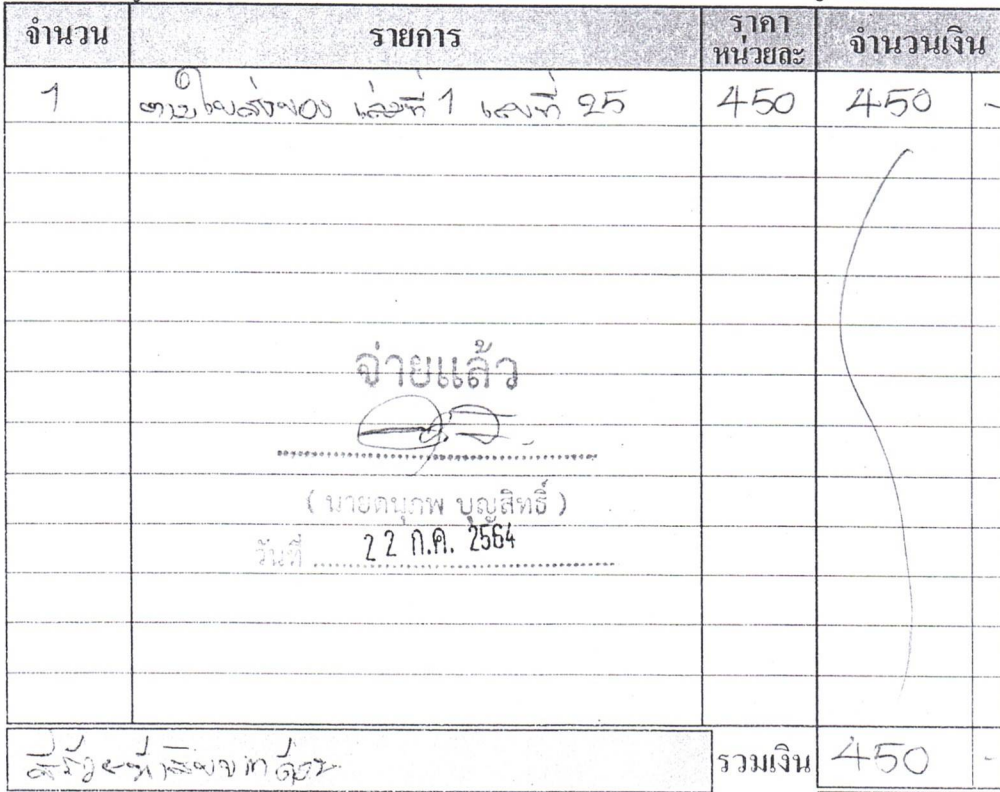 จำนวน รายการ ราคาหน่วยละ จำนวนเงิน
1 ตามใบส่งของ เล่มที่ 1 เลขที่ 25 450 450 -
จ่ายแล้ว
( นายดนุภพ บุญสิทธิ์ )
วันที่ 22 ก.ค. 2564
สี่ร้อยห้าสิบบาทถ้วน รวมเงิน 450 -